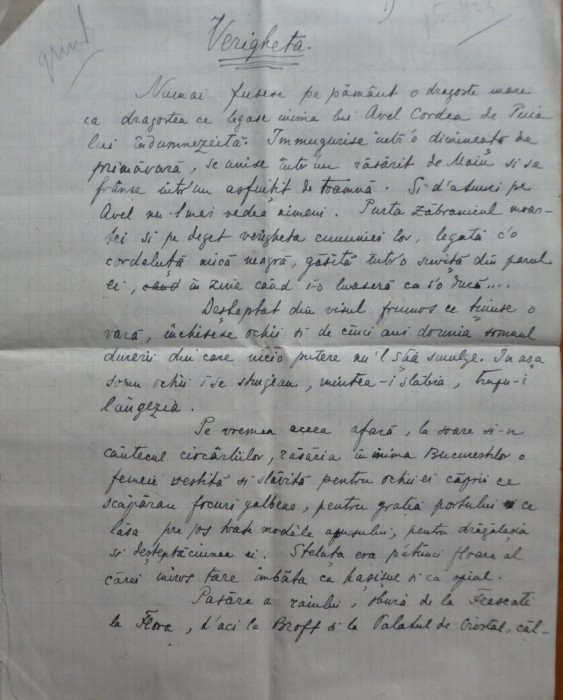 1)
Verigheta.
Numai fusese pe pământ o dragoste mare
ca dragostea ce legase inima lui Avel Cordea de Puia
lui îndumnezeită. Immugurise într'o dimineață de
primăvară, se unise într'un răsărit de Maiu și se
frânse într'un asfințit de toamnă. Și d'atunci pe
Avel nu-l mai vedea nimeni. Purta zăbranicul moar-
tei și pe deget verigheta cununiei lor, legată c'o
cordeluță mică neagră, găsită într'o șuviță din părul
ei, în ziua când i-o luaseră ca s'o ducă....
Deșteptat din visul frumos ce ținuse o
vară, închisese ochii și de cinci ani dormia somnul
durerii din care nicio putere nu'l să smulge. În așa
somn ochii i se stingeau, mintea-i slăbia, trupu-i
lângezia.
Pe vremea aceea afară, la soare și-n
cântecul ciocârliilor, răsăria în inima Bucureștilor o
femeie vestită și slăvită pentru ochii ei căprii ce
scăpărau focuri galbene, pentru grația portului ce
lăsa pe jos toate modele apusului, pentru drăgălășia
și deșteptăciunea ei. Steluța era pătimaș floare al
cărei miros tare îmbăta ca hașișul și ca opiul.
Pasăre a raiului, sbura de la Frascati
la Flora, d'aci la Broft și la Palatul de Cristal, căl-